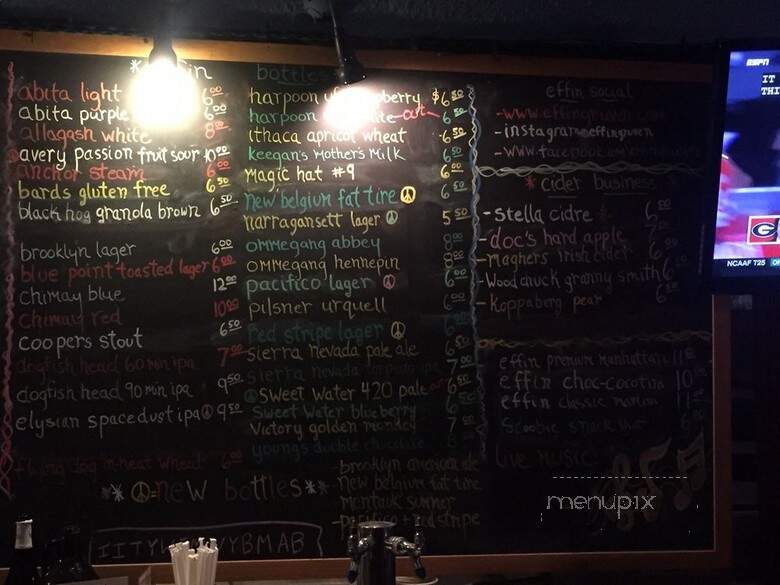 bottles
abita light 6.00
abita purple 6.00
allagash white 8.00
avery passion fruit sour 10.00
anchor steam 6.00
bards gluten free 6.50
black hog granola brown 6.50
brooklyn lager 6.00
blue point toasted lager 6.00
chimay blue 12.00
chimay red 10.00
coopers stout 6.50
dogfish head 60 min ipa 7.00
dogfish head 90 min ipa 9.50
elysian spacedust ipa 9.50
flying dog in-heat wheat 6.00
harpoon $6.50
harpoon out 6.50
ithaca apricot wheat 6.50
keegan's mother's milk 6.50
magic hat #9 6.00
new belgium fat tire 6.50
narragansett lager 5.50
ommegang abbey 8.00
ommegang hennepin 8.00
pacifico lager 6.00
pilsner urquell 6.00
red stripe lager
sierra nevada pale ale 6.50
sierra nevada torpedo ipa
sweet water 420 pale
sweet water blueberry
victory golden monkey 7
young's double chocolate
brooklyn american ale
new belgium fat tire
montauk summer
pacifico + red stripe
=new bottles
effin social
-www.effingruven.com
-instagram effingruven
-www.facebook.com
cider business
-stella cidre 6
-doc's hard apple 7
-maghers irish cider 6
-woodchuck granny smith 6
-koppaberg pear
effin premium manhattan 11
effin choc-cocotini 10
effin classic martini 11
scoobie snack shot 6
live music
menupix
ESPN
IT
THI
G
NCAAF T25